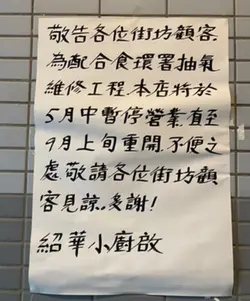 敬告各位街坊顧客,
為配合食環署抽氣
維修工程.本店特於
5月中暫停營業,直至
9月上旬重開.不便之
處.敬請各位街坊顧
客見諒,多謝!
紹華小廚啟